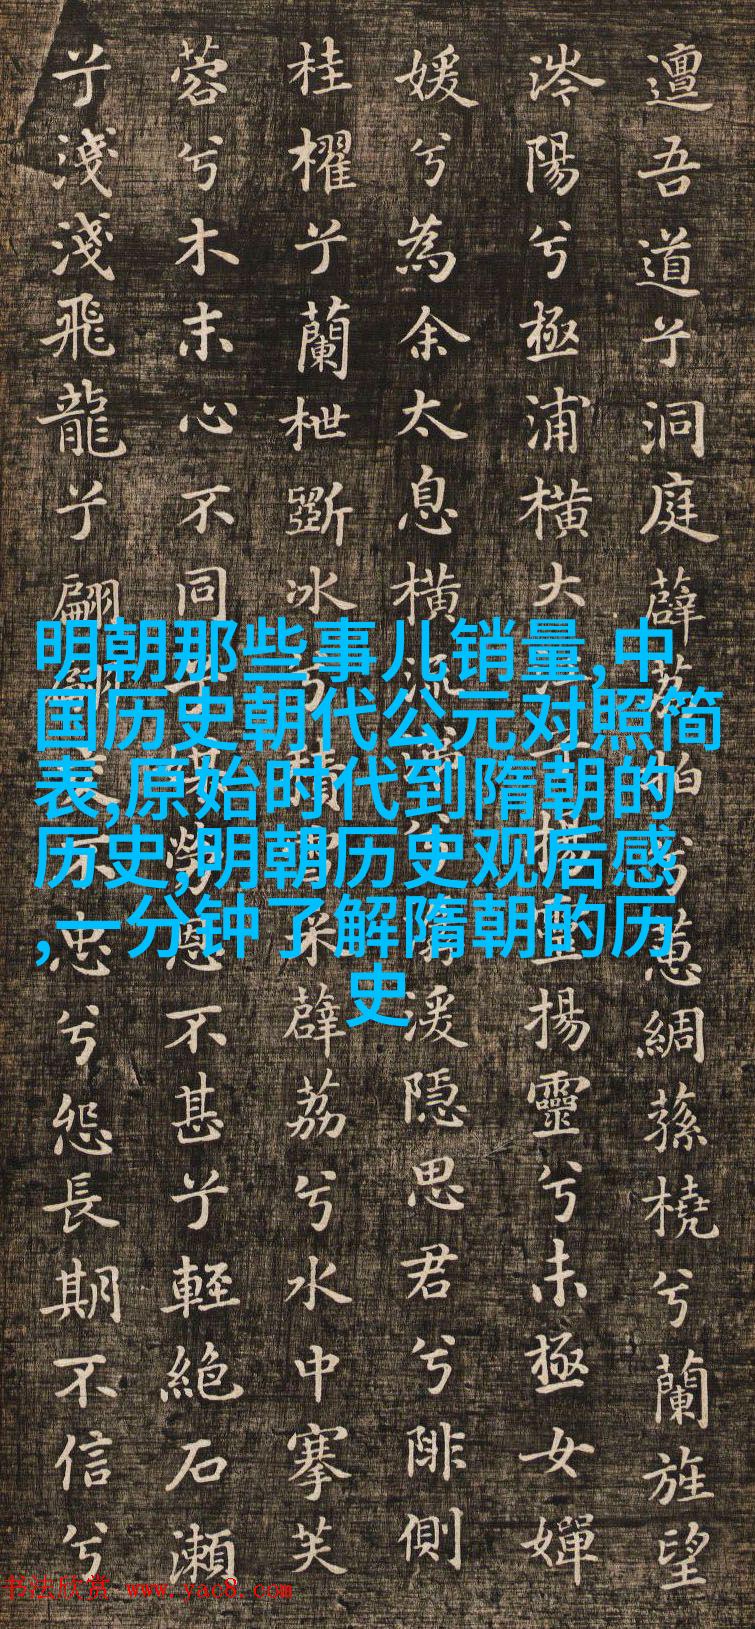 邅吾道兮洞庭薜荔柏兮蕙綢蓀橈兮蘭旌望
涔陽兮極浦橫大江兮揚靈揚靈兮未極女嬋
媛兮為余太息橫流涕兮潺湲隱思君兮陫側
桂櫂兮蘭枻斲冰兮積雪采薜荔兮水中搴芙
蓉兮木末心不同兮媒勞恩不甚兮輕絕石瀨
兮淺淺飛龍兮翩翩交不忠兮怨長期不信兮
明朝那些事儿销量,中
国历史朝代公元对照简
表,原始时代到隋朝的
历史,明朝历史观后感
,一分钟了解隋朝的历
史
书法欣赏 www.yac8.com